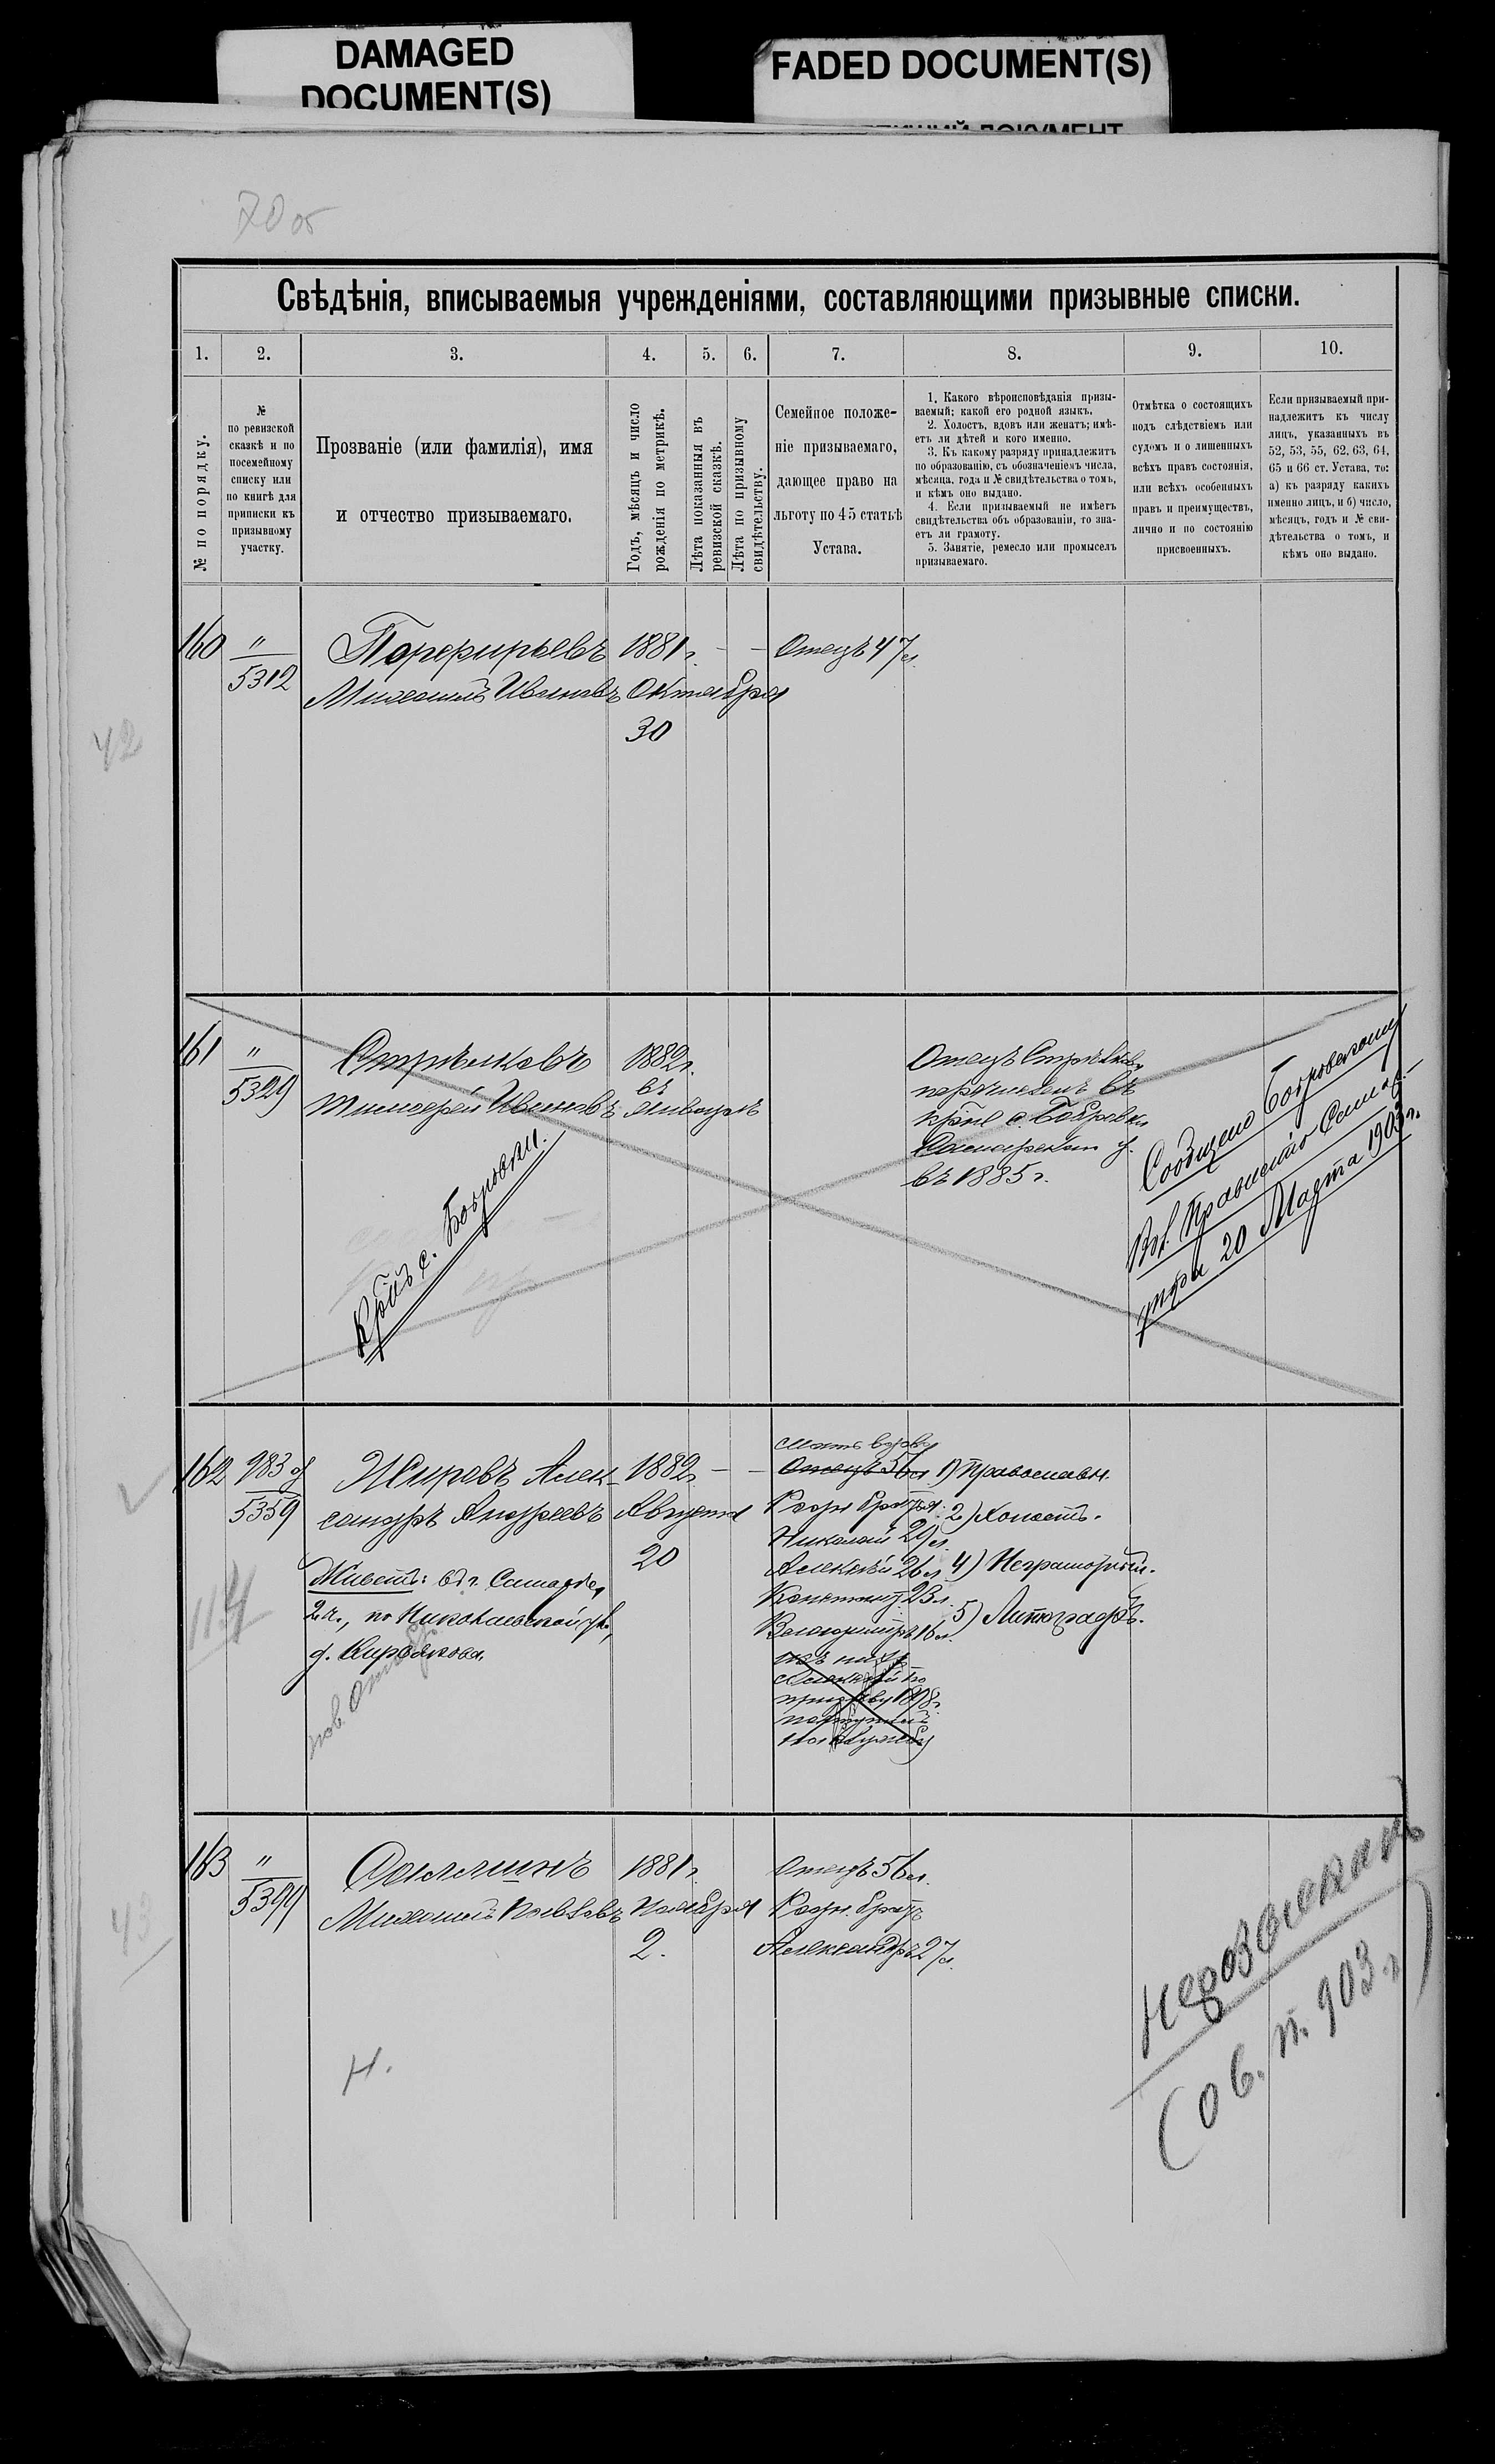 DAMAGED
DOCUMENT(S)
FADED DOCUMENT(S)
70 об
Свѣдѣнія, вписываемыя учрежденіями, составляющими призывные списки.
1. 2. 3. 4. 5. 6. 7. 8. 9. 10.
№ по порядку.
№
по ревизской
сказкѣ и по
посемейному
списку или
по книгѣ для
приписки къ
призывному
участку.
Прозваніе (или фамилія), имя
и отчество призываемаго.
Годъ, мѣсяцъ и число
рожденія по метрикѣ.
Лѣта показанныя въ
ревизской сказкѣ.
Лѣта по призывному
свидѣтельству.
Семейное положе-
ніе призываемаго,
дающее право на
льготу по 45 статьѣ
Устава.
1. Какого вѣроисповѣданія призы-
ваемый; какой его родной языкъ.
2. Холостъ, вдовъ или женатъ; имѣ-
етъ ли дѣтей и кого именно.
3. Къ какому разряду принадлежитъ
по образованію, съ обозначеніемъ числа,
мѣсяца, года и № свидѣтельства о томъ,
и кѣмъ оно выдано.
4. Если призываемый не имѣетъ
свидѣтельства объ образованіи, то зна-
етъ ли грамоту.
5. Занятіе, ремесло или промыселъ
призываемаго.
Отмѣтка о состоящихъ
подъ слѣдствіемъ или
судомъ и о лишенныхъ
всѣхъ правъ состоянія,
или всѣхъ особенныхъ
правъ и преимуществъ,
лично и по состоянію
присвоенныхъ.
Если призываемый при-
надлежитъ къ числу
лицъ, указанныхъ въ
52, 53, 55, 62, 63, 64,
65 и 66 ст. Устава, то:
а) къ разряду какихъ
именно лицъ, и б) число,
мѣсяцъ, годъ и № сви-
дѣтельства о томъ, и
кѣмъ оно выдано.
42
160
"
5312
Порфирьевъ
Михаилъ Ивановъ
1881 г.
Октября
30
Отецъ 47 л.
161
"
5329
Стрѣлковъ
Тимофей Ивановъ
1882 г.
въ
январѣ
Кр-нъ с. Бобровки.
Отецъ Стрѣлковъ
перечисленъ въ
кр-не с. Бобровки
Самарскаго у.
въ 1885 г.
Сообщено Бобровскому
Вол. Правленію Самар-
20 Марта 1903 г.
162
983
5359
114
Жировъ Алек-
сандръ Андреевъ
Живетъ: въ г. Самарѣ,
2 ч., по Николаевской ул.,
д. Кирпякова.
1882 г.
Августа
20
мать вдова
Отецъ 56 л.
Родн. братья:
Николай 29 л.
Алексѣй 26 л.
Констант. 23 л.
Владиміръ 16 л.
изъ нихъ
Алексѣй по
призыву 1898 г.
поступилъ
на службу
1) Православн.
2) Холостъ.
4) Неграмотный.
5) Литографъ.
43
163
"
5399
Михаилъ Павловъ
1881 г.
Ноября
2.
Отецъ 56 л.
Родн. братъ
Александръ 27 л.
Н.